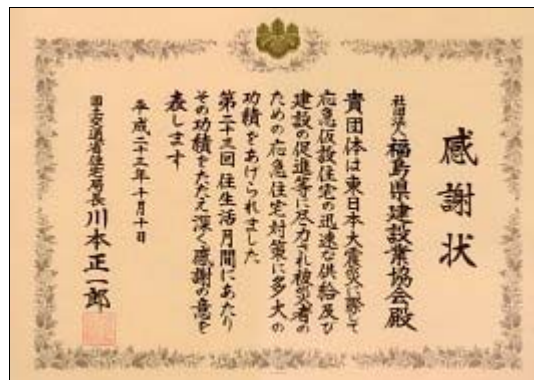 感謝状
社団法人 福島県建設業協会殿
貴団体は東日本大震災に際して
応急仮設住宅の迅速な供給及び
建設の促進等に尽力され被災者の
ための応急住宅対策に多大の
功績をあげられました
第二十三回住生活月間にあたり
その功績をたたえ深く感謝の意を
表します
平成二十三年十月十日
国土交通省住宅局長 川本正一郎